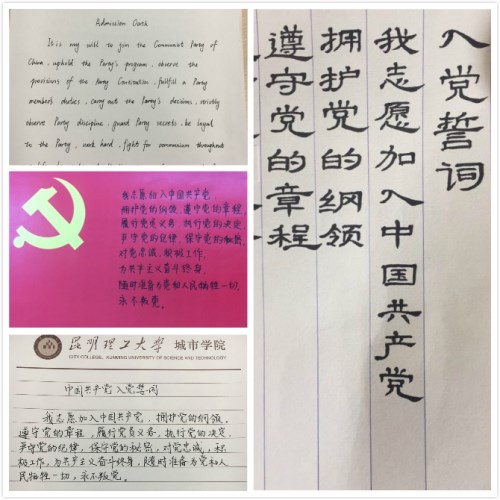 Admission Oath
It is my will to join the Communist Party of
China, uphold the Party's program, observe the
provisions of the Party Consitution, fullfill a Party
members duties, carry out the Party's decisions, strictly
observe Party discipline, guard Party secrets, be loyal
to the Party, work hard, fight for communism throughout
我志愿加入中国共产党
拥护党的纲领,遵守党的章程,
履行党员义务,执行党的决定,
严守党的纪律,保守党的秘密,
对党忠诚,积极工作,
为共产主义奋斗终身,
随时准备为党和人民牺牲一切,
永不叛党。
昆明理工大学 城市学院
CITY COLLEGE, KUNMING UNIVERSITY OF SCIENCE AND TECHNOLOGY
中国共产党入党誓词
我志愿加入中国共产党,拥护党的纲领,
遵守党的章程,履行党员义务,执行党的决定,
严守党的纪律,保守党的秘密,对党忠诚,积
极工作,为共产主义奋斗终身,随时准备为党和人
民牺牲一切,永不叛党。
入党誓词
我志愿加入中国共产党
拥护党的纲领
遵守党的章程